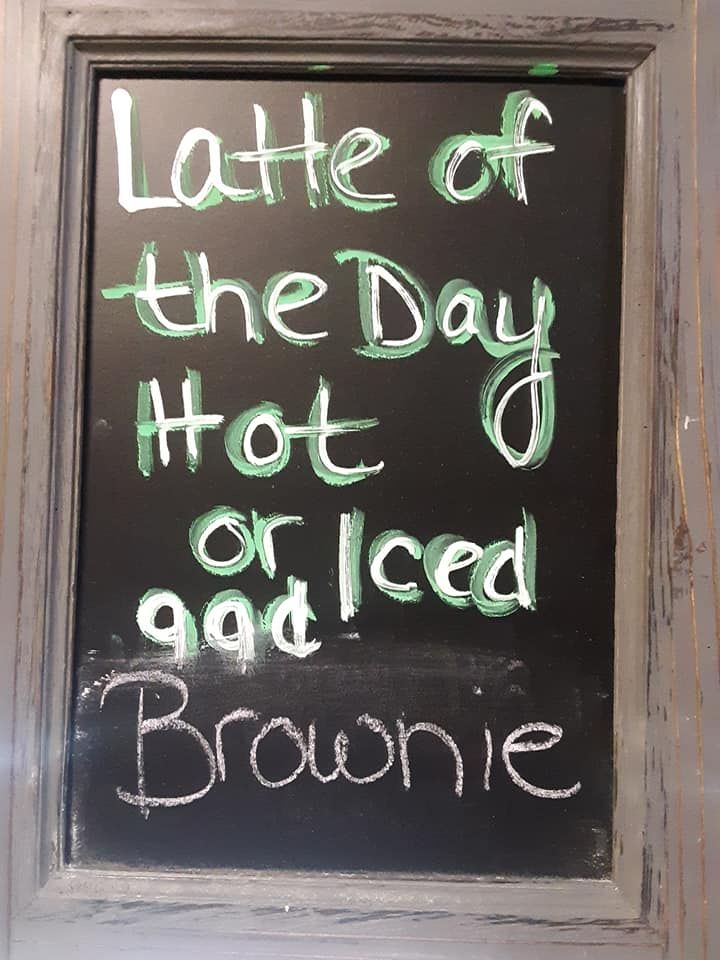 Latte of
the Day
Hot
or Iced
99¢
Brownie